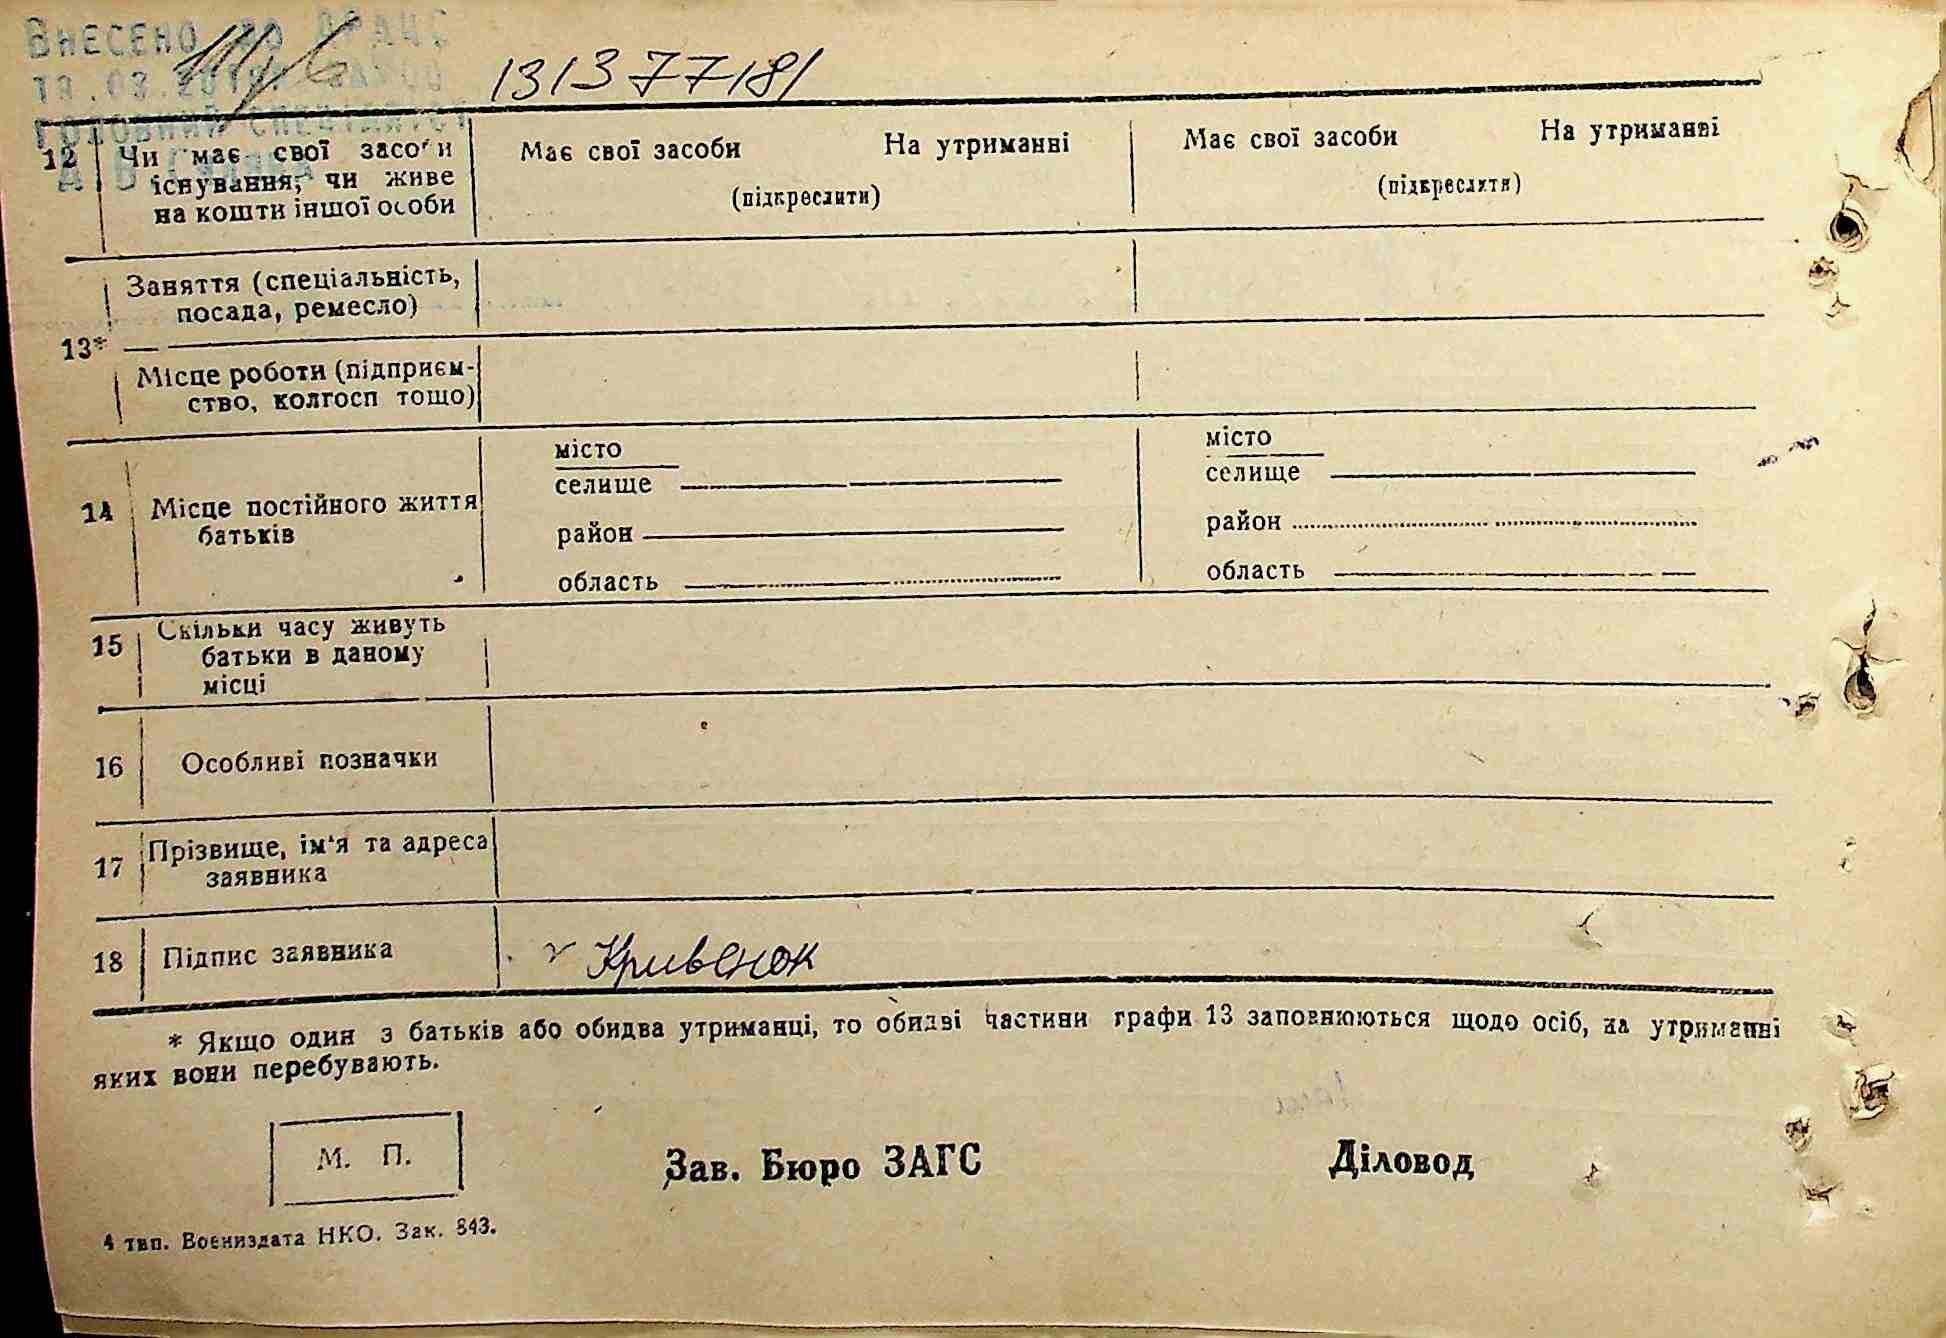 Внесено до ДРАЦС
13137718/
Головний спеціаліст
12 Чи має свої засоби існування, чи живе на кошти іншої особи
Має свої засоби На утриманні
(підкреслити)
Має свої засоби На утриманні
(підкреслити)
13*
Заняття (спеціальність,
посада, ремесло)
Місце роботи (підприєм-
ство, колгосп тощо)
14 Місце постійного життя
батьків
місто
селище
район
область
місто
селище
район
область
15 Скільки часу живуть
батьки в даному
місці
16 Особливі позначки
17 Прізвище, ім'я та адреса
заявника
18 Підпис заявника
Кривенок
* Якщо один з батьків або обидва утриманці, то обидві частини графи 13 заповнюються щодо осіб, на утриманні
яких вони перебувають.
М. П.
Зав. Бюро ЗАГС
Діловод
4 тип. Воениздата НКО. Зак. 843.